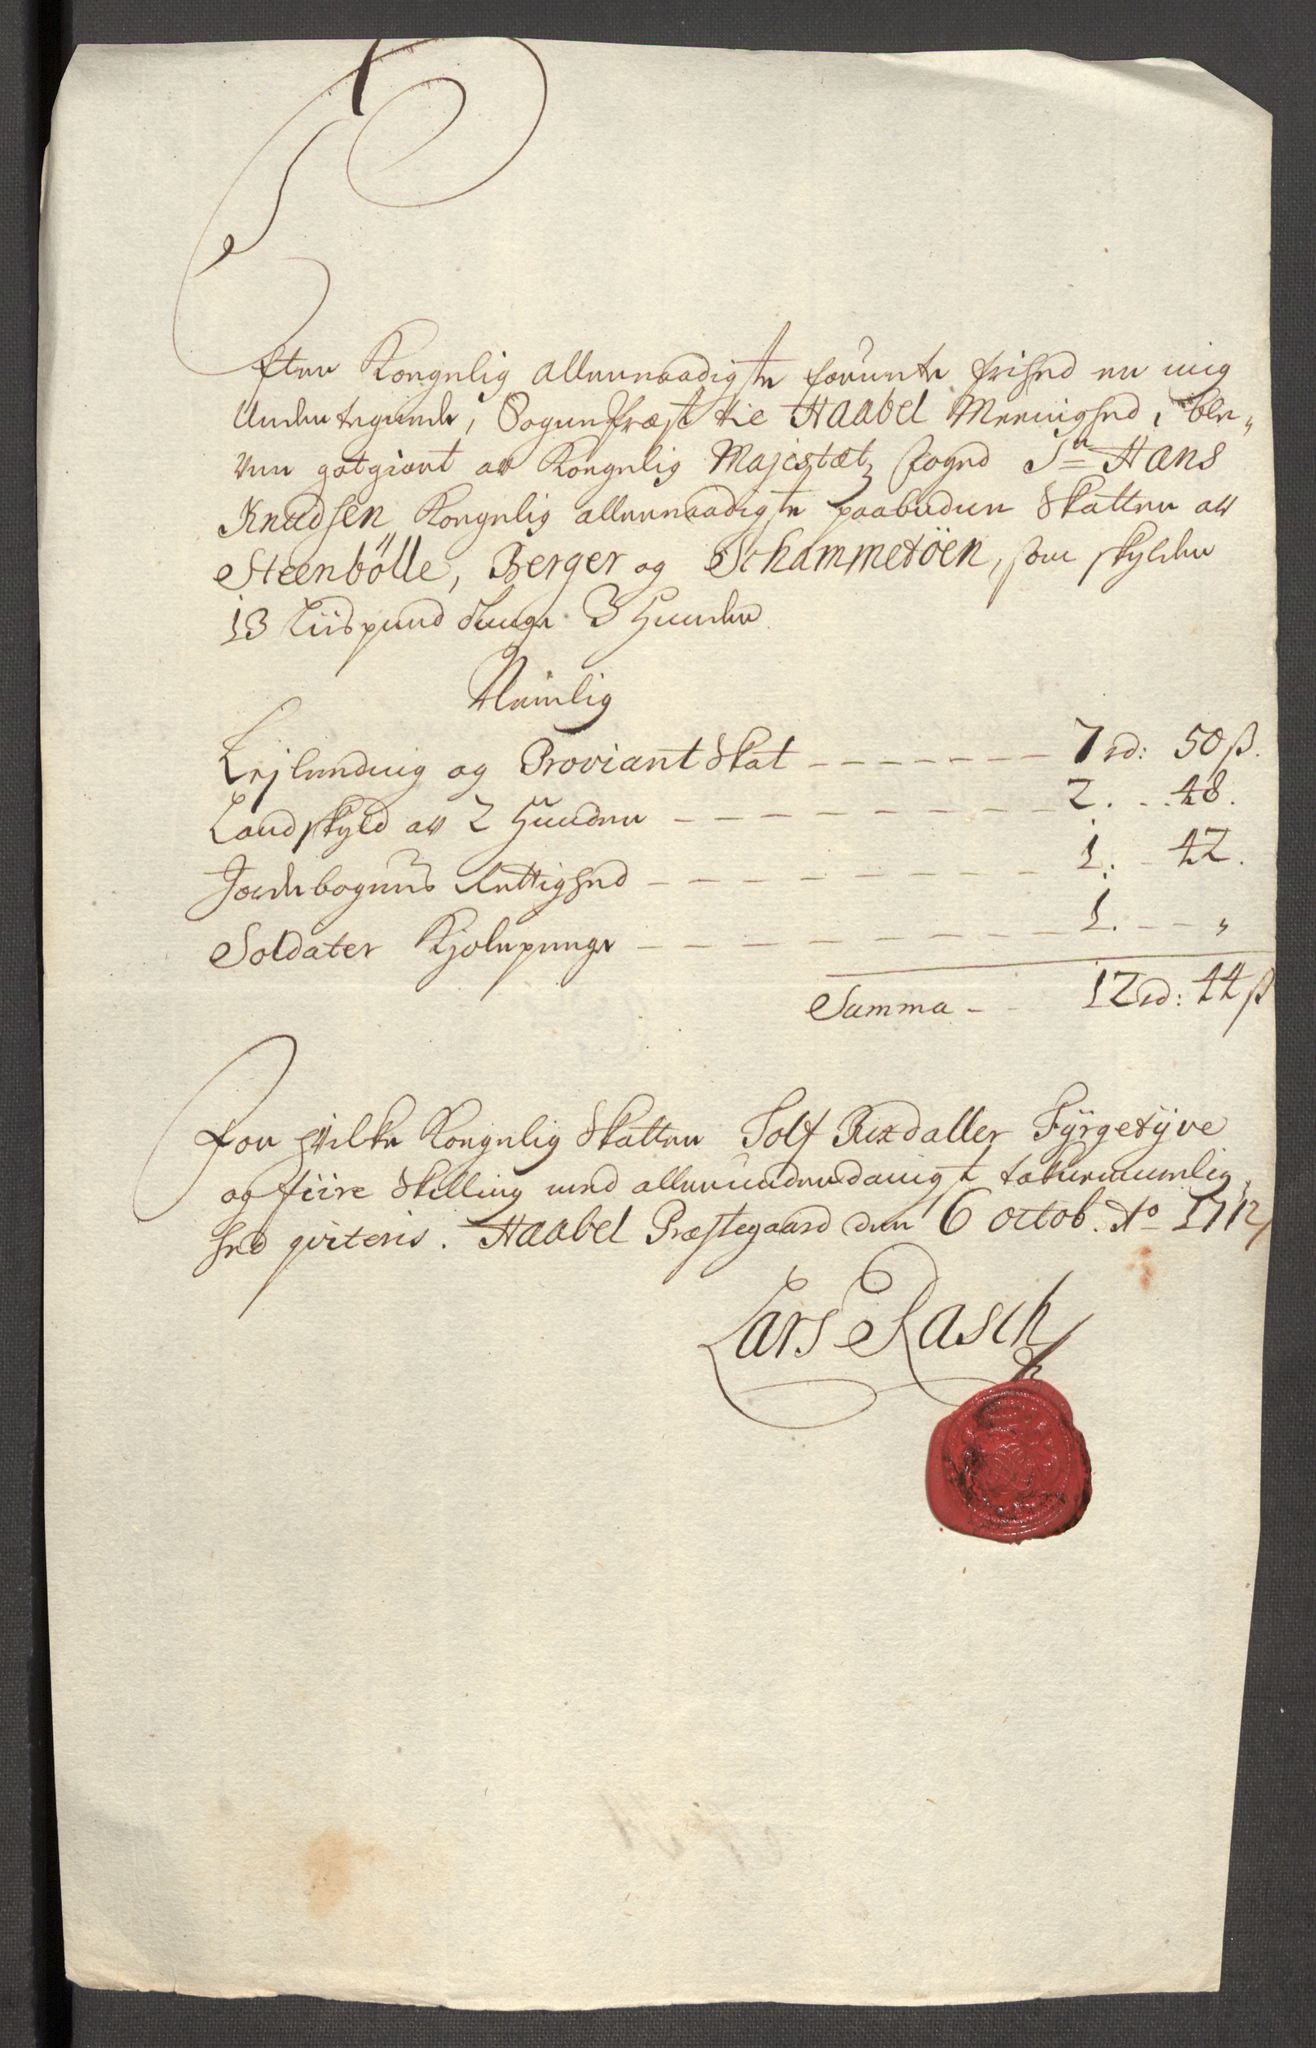 Efter Kongelig allernaadigste forunte frihed er mig
Undertegnede, Sognepræst til Haabel Meenighed, ble-
ven gotgiort av Kongelig Majestætz foged Sr Hans
Knudsen Kongelig allernaadigste paabudne Skatter av
Steenbölle, Berger og Schammetöen, som skylder
13 Liispund tunge 3 Huuder
Nemlig
Leylending og Proviant Skat - - - - - - - 7 rd: 50 ß.
Landskyld av 2 Huuder - - - - - - - 2. - 48.
Jordebogens Rettighed - - - - - - - 1. - 42.
Soldater Kjolepenge - - - - - - - 1. - - "
Summa - - 12 rd: 44 ß
For hvilke Kongelig Skatter Tolf Rixdaller Fyrgetyve
og fiire Skilling med allerunderdanigst taknemmelig-
hed qviteris. Haabel Præstegaard den 6 octob. Ao 1712
Lars Rasch